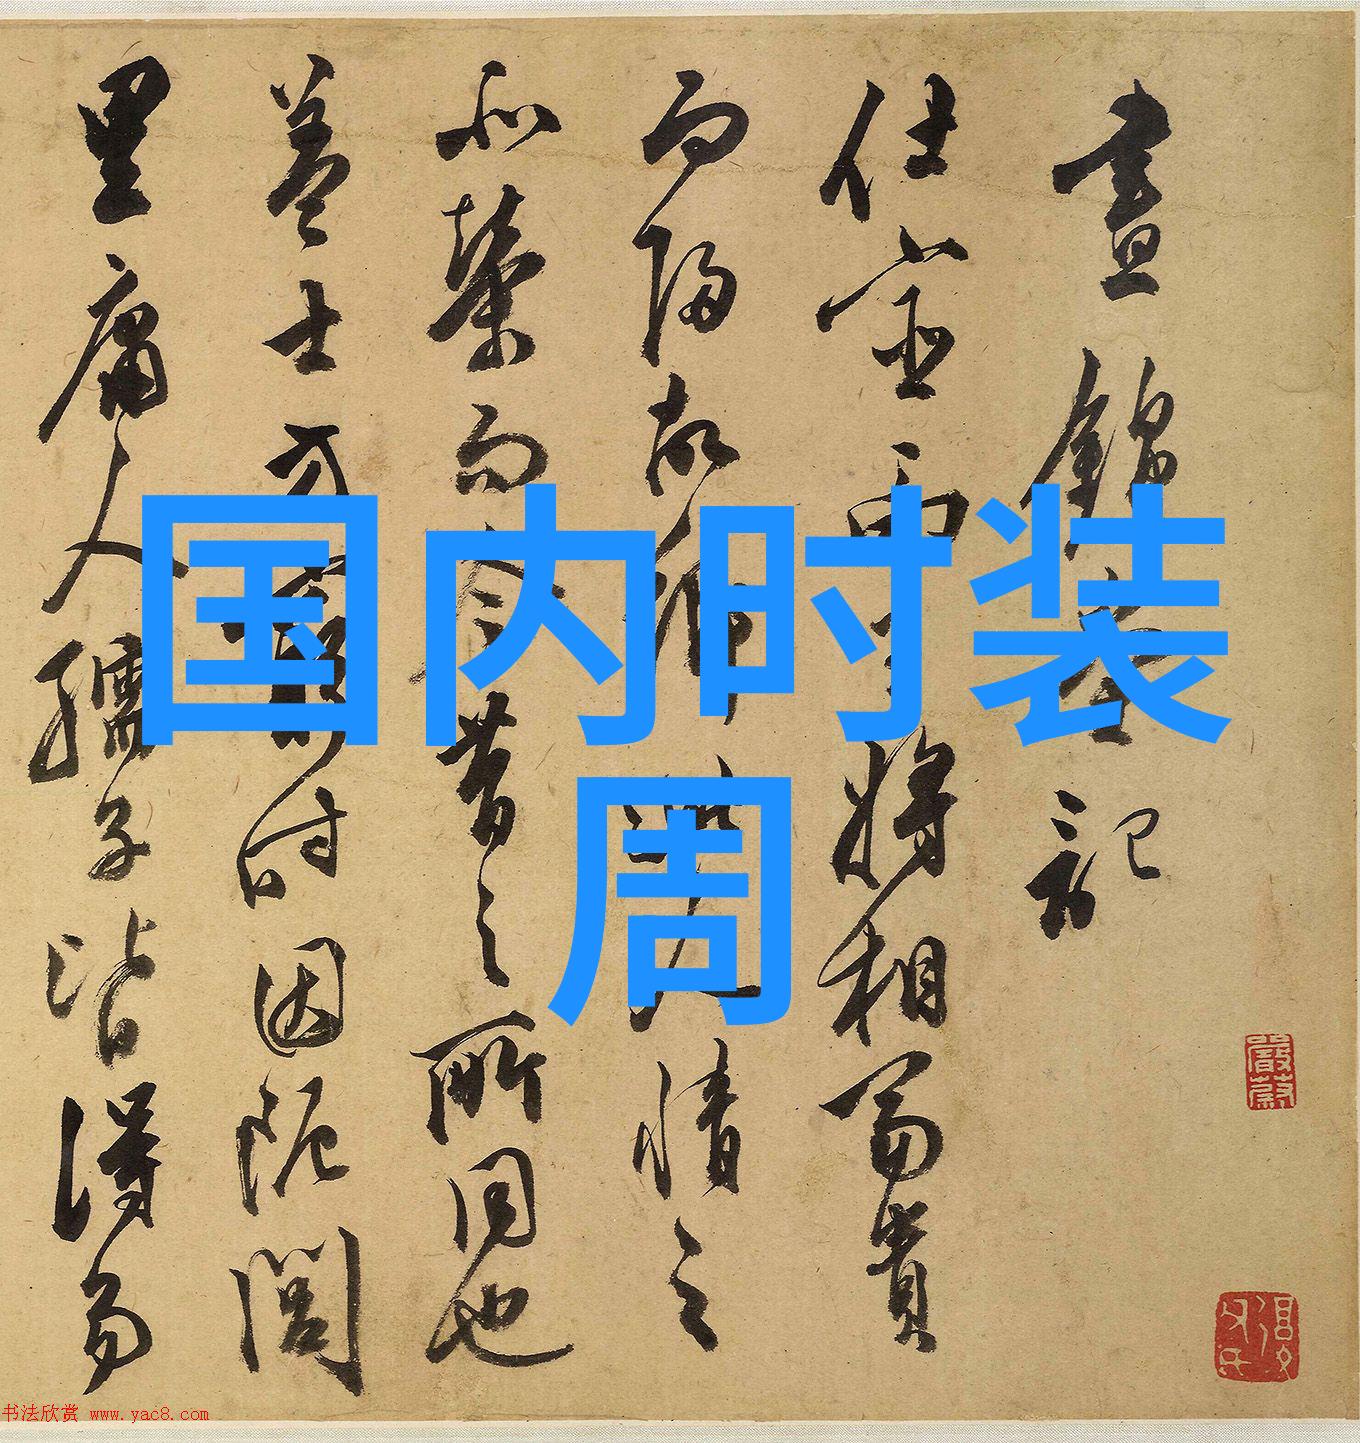 晝錦堂記
仕宦而至將相富貴
而歸故鄉此人情之
所榮而今昔之所同也
蓋士方窮時困阨閭
里庸人孺子皆得易
国内时装
周
书法欣赏 www.yac8.com